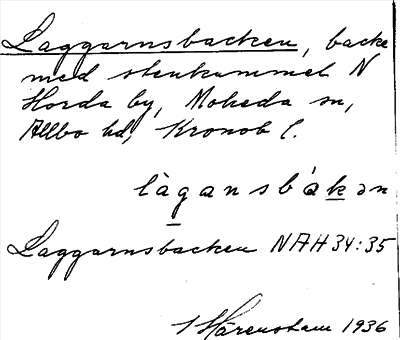 Laggarnsbacken, backe
med stenkummel N
Horda by, Moheda sn,
Allbo hd, Kronob l.
làgansbákən
Laggarnsbacken NAH34:35
1936